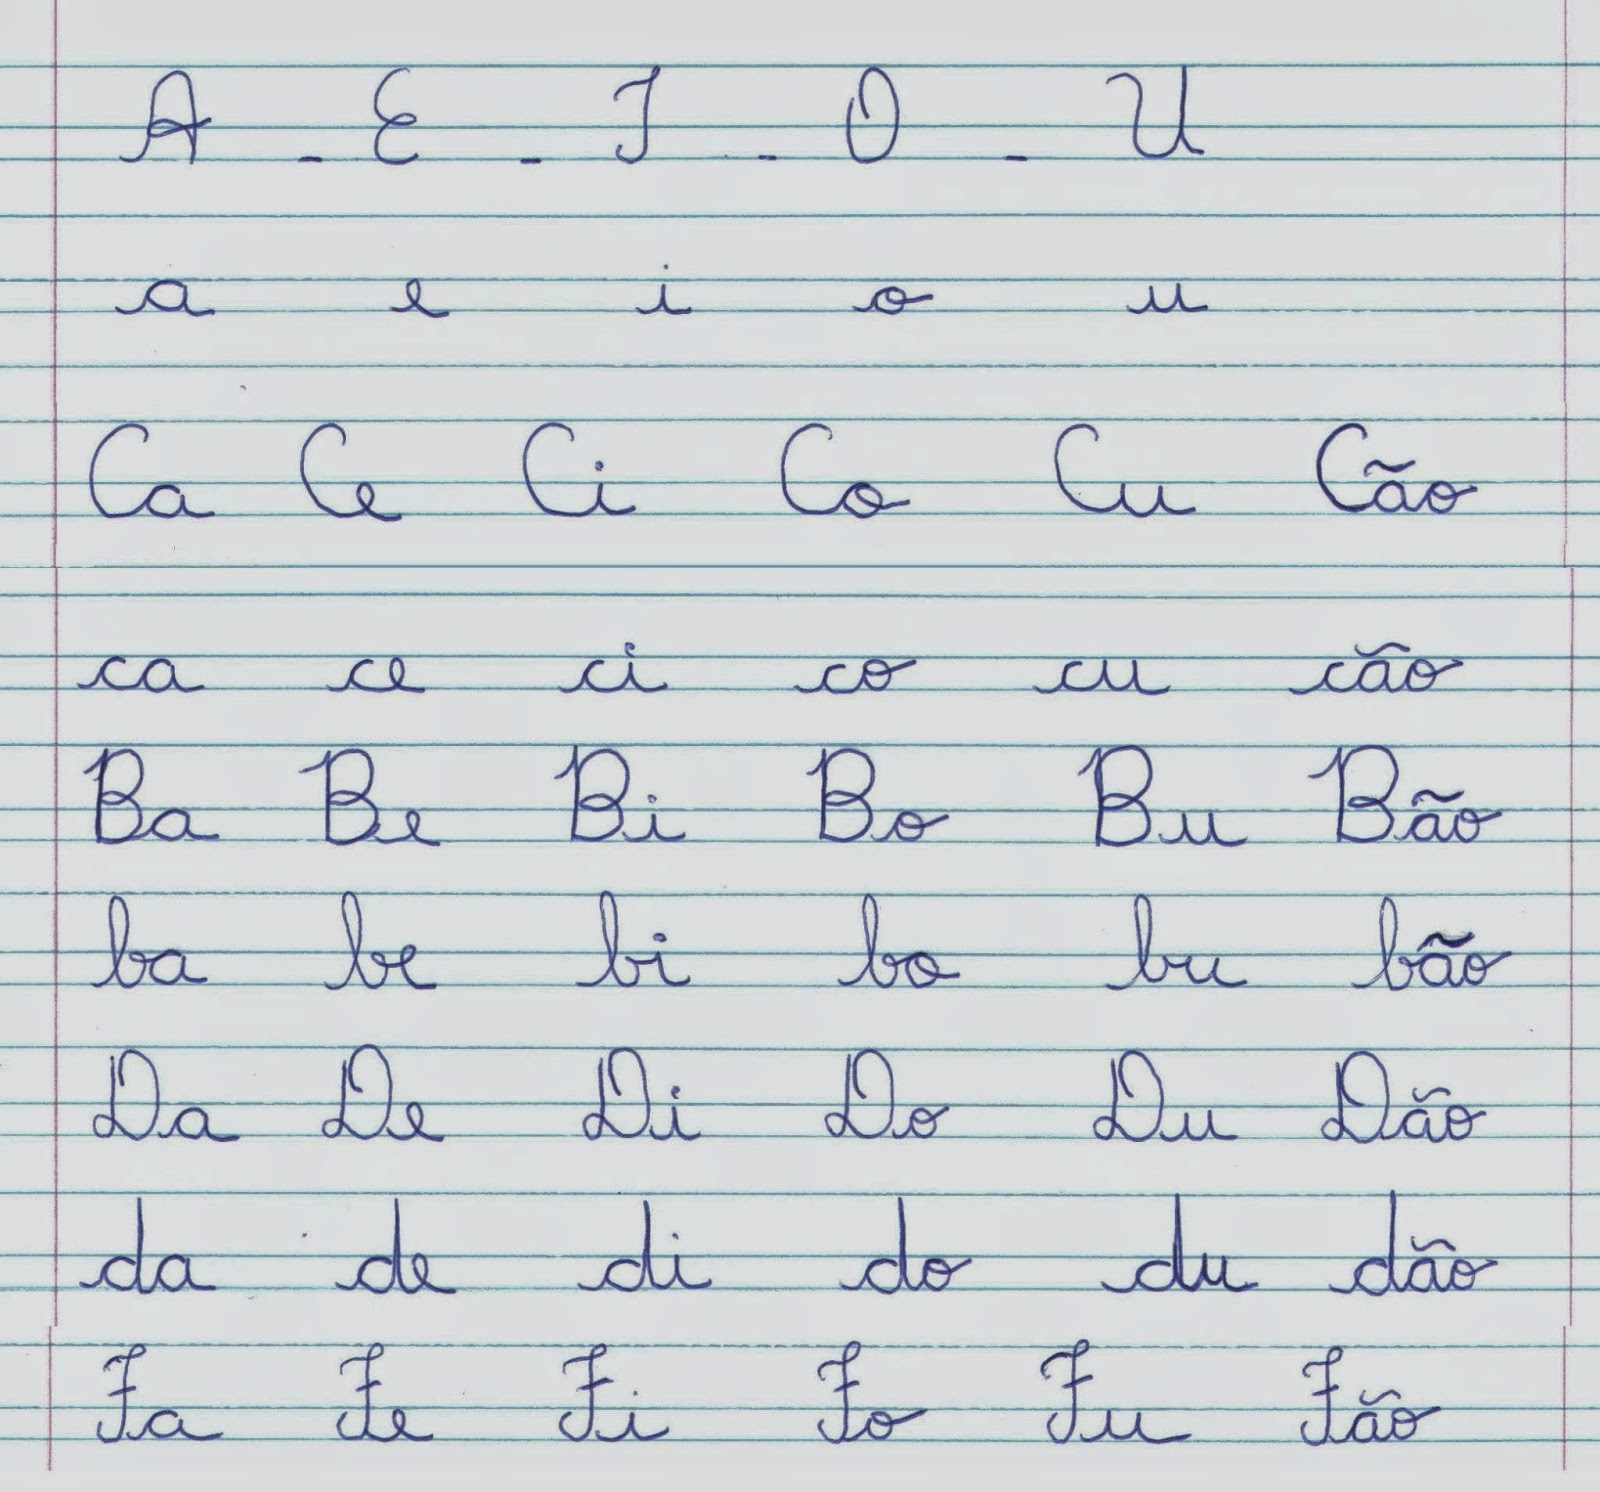 A - E - I - O - U
a e i o u
Ca Ce Ci Co Cu Cão
ca ce ci co cu cão
Ba Be Bi Bo Bu Bão
ba be bi bo bu bão
Da De Di Do Du Dão
da de di do du dão
Fa Fe Fi Fo Fu Fão